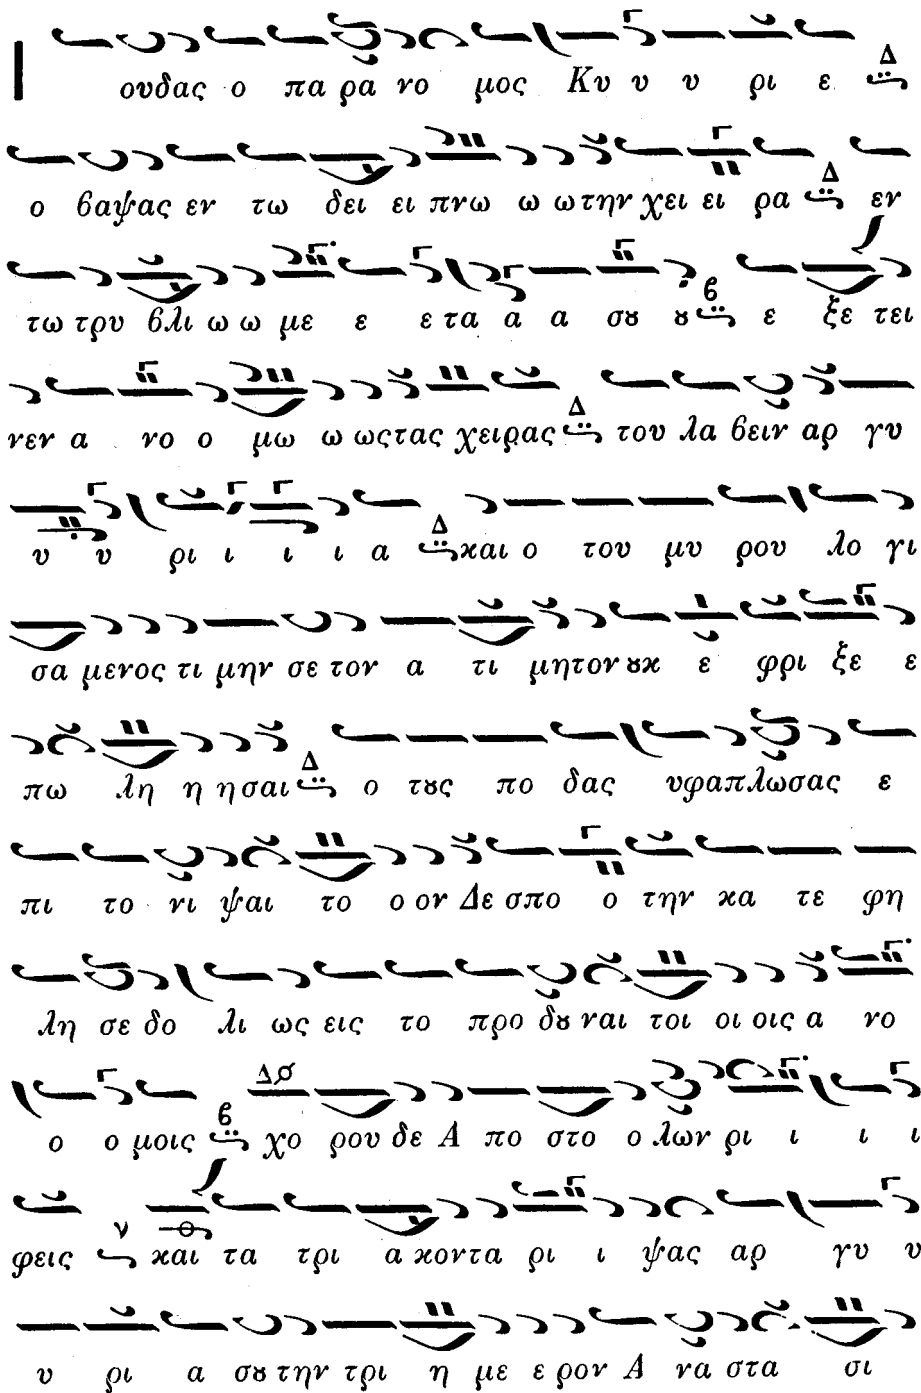 ουδας ο πα ρα νο μος Κυ υ υ ρι ε Δ
ο βαψας εν τω δει ει πνω ω ω την χει ει ρα Δ εν
τω τρυ βλι ω ω με ε ε τα α α σȣ ȣ β ε ξε τει
νεν α νο ο μω ω ως τας χειρας Δ του λα βειν αρ γυ
υ υ ρι ι ι ι α Δ και ο του μυ ρου λο γι
σα μενος τι μην σε τον α τι μητον ȣκ ε φρι ξε ε
πω λη η η σαι Δ ο τȣς πο δας υφαπλωσας ε
πι το νι ψαι το ο ον Δε σπο ο την κα τε φη
λη σε δο λι ως εις το προ δȣ ναι τοι οι οις α νο
ο ο μοις β Δ χο ρου δε Α πο στο ο λων ρι ι ι ι
φεις ν και τα τρι α κοντα ρι ι ψας αρ γυ υ
υ ρι α σȣ την τρι η με ε ρον Α να στα σι